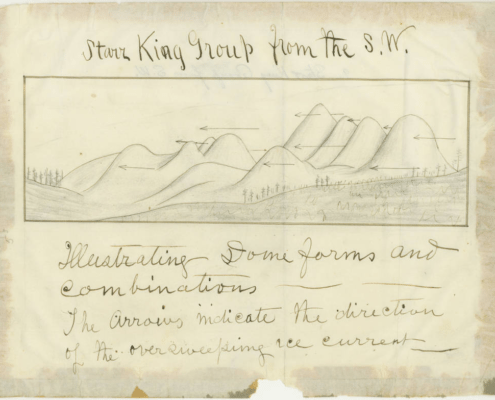 Starr King Group from the S.W.
Illustrating Dome forms and
combinations
The Arrows indicate the direction
of the oversweeping ice current